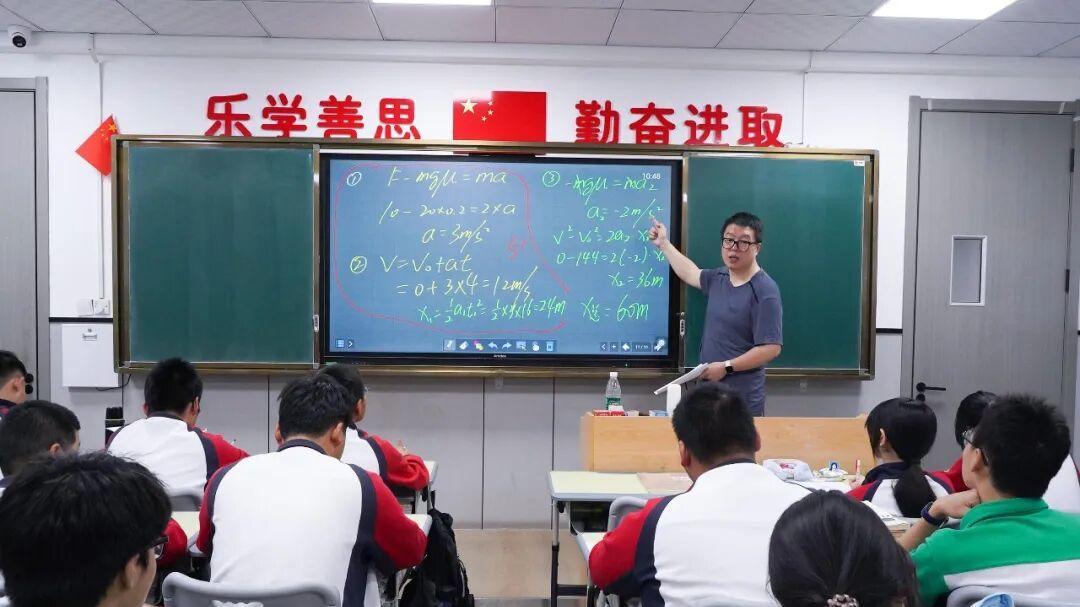 乐学善思
勤奋进取
① F - mgμ = ma
10 - 20×0.2 = 2×a
a = 3m/s²
② V = V₀ + at
= 0 + 3×4 = 12m/s
X₁ = ½a₁t₁² = ½×3×16 = 24m
10:48
③ -mgμ = ma₂
a₂ = -2m/s²
V² - V₀² = 2a₂·X₂
0 - 144 = 2(-2)·X₂
X₂ = 36m
X总 = 60m